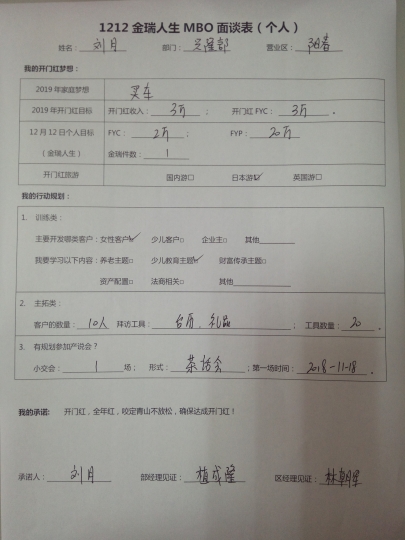 1212 金瑞人生 MBO 面谈表（个人）
姓名： 刘月 部门： 兴隆部 营业区： 阳春
我的开门红梦想：
2019 年家庭梦想 买车
2019 年开门红目标 开门红收入： 3万 ； 开门红 FYC： 3万 .
12 月 12 日个人目标 FYC： 2万 ； FYP： 20万
（金瑞人生） 金瑞件数： 1
开门红旅游 国内游□ 日本游☑ 英国游□
我的行动规划：
1. 训练类：
主要开发哪类客户：女性客户☑ 少儿客户□ 企业主□ 其他
我要学习以下内容：养老主题□ 少儿教育主题☑ 财富传承主题□
资产配置□ 法商相关□ 其他
2. 主拓类：
客户的数量： 10人 拜访工具： 台历、礼品 ； 工具数量： 20 .
3. 有规划参加产说会？
小交会： 1 场； 形式： 茶话会 ；第一场时间： 2018-11-18 .
我的承诺： 开门红，全年红，咬定青山不放松，确保达成开门红！
承诺人： 刘月 部经理见证： 植成隆 区经理见证： 林朝